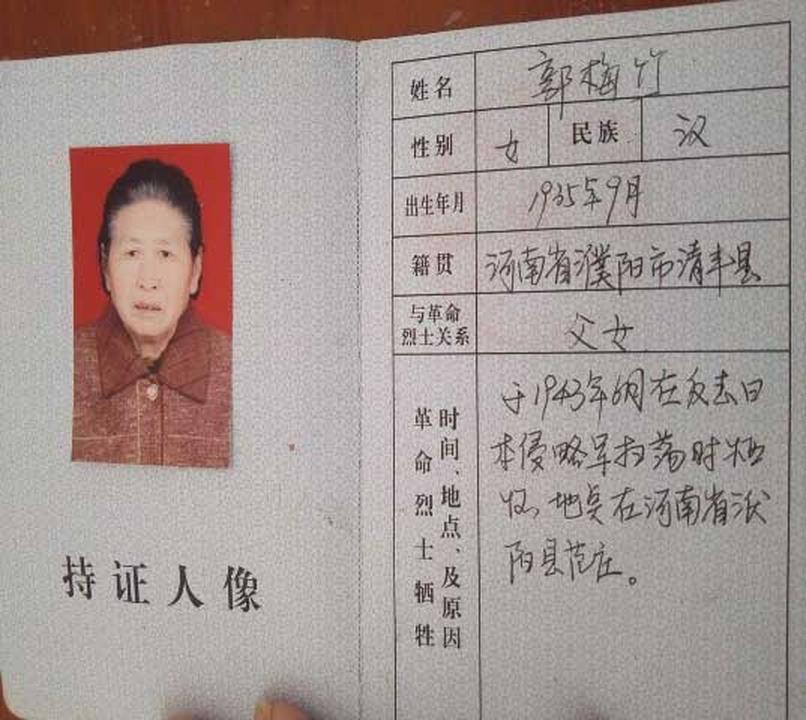 持证人像
姓名 郭梅竹
性别 女 民族 汉
出生年月 1935年9月
籍贯 河南省濮阳市清丰县
与革命
烈士关系 父女
革命烈士牺牲
时间、地点、及原因
于1943年6月在反击日
本侵略军扫荡时牺
牲，地点在河南省濮
阳县范庄。